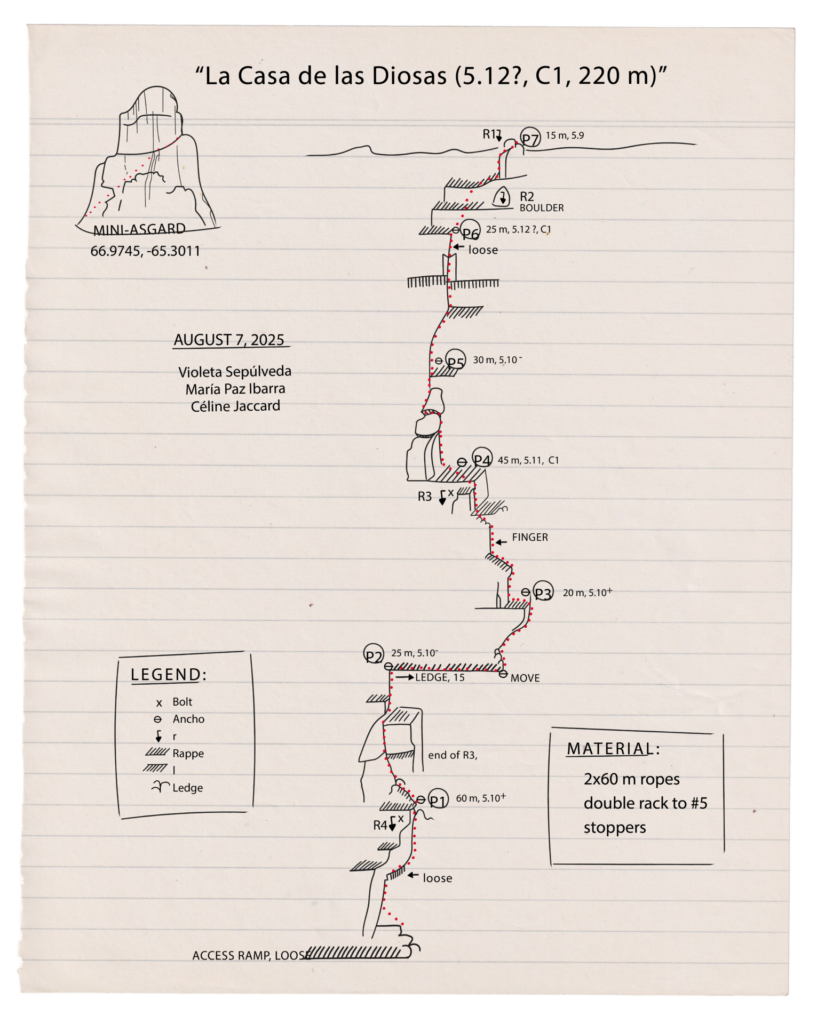 “La Casa de las Diosas (5.12?, C1, 220 m)”
MINI-ASGARD
66.9745, -65.3011
R1
P7 15 m, 5.9
R2
BOULDER
P6 25 m, 5.12 ?, C1
loose
AUGUST 7, 2025
Violeta Sepúlveda
María Paz Ibarra
Céline Jaccard
P5 30 m, 5.10-
P4 45 m, 5.11, C1
R3 x
FINGER
P3 20 m, 5.10+
P2 25 m, 5.10-
LEDGE, 15
MOVE
end of R3,
P1 60 m, 5.10+
R4 x
loose
ACCESS RAMP, LOOSE
LEGEND:
x Bolt
Ancho
r
Rappe
l
Ledge
MATERIAL:
2x60 m ropes
double rack to #5
stoppers